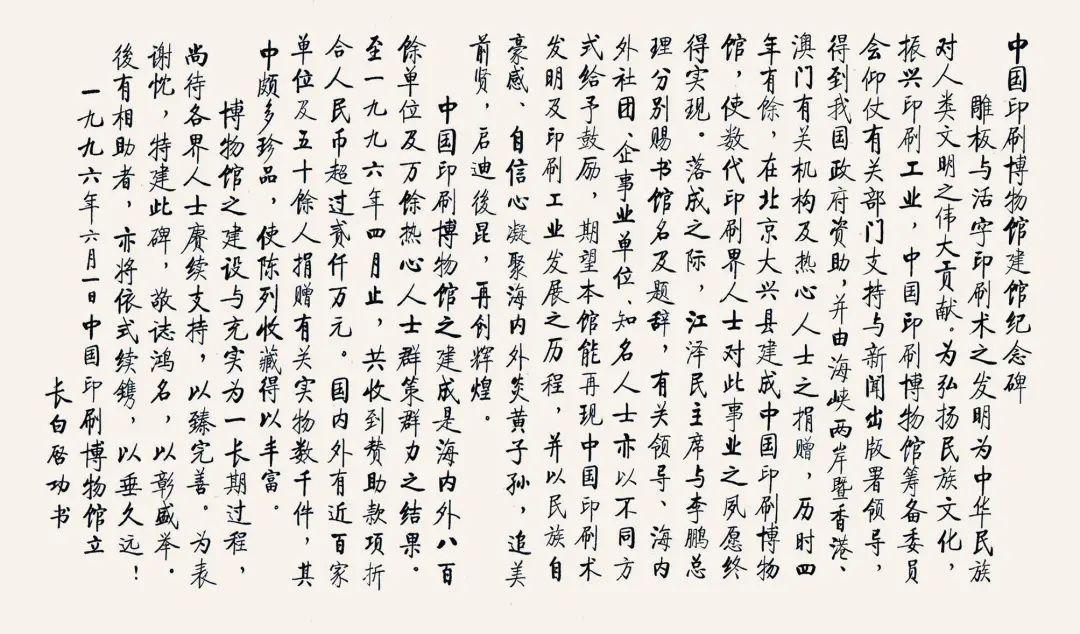 中国印刷博物馆建馆纪念碑
雕板与活字印刷术之发明为中华民族
对人类文明之伟大贡献。为弘扬民族文化,
振兴印刷工业,中国印刷博物馆筹备委员
会仰仗有关部门支持与新闻出版署领导,
得到我国政府资助,并由海峡两岸暨香港、
澳门有关机构及热心人士之捐赠,历时四
年有馀,在北京大兴县建成中国印刷博物
馆,使数代印刷界人士对此事业之夙愿终
得实现。落成之际,江泽民主席与李鹏总
理分别赐书馆名及题辞,有关领导、海内
外社团、企事业单位、知名人士亦以不同方
式给予鼓励,期望本馆能再现中国印刷术
发明及印刷工业发展之历程,并以民族自
豪感、自信心凝聚海内外炎黄子孙,追美
前贤,启迪後昆,再创辉煌。
中国印刷博物馆之建成是海内外八百
馀单位及万馀热心人士群策群力之结果。
至一九九六年四月止,共收到赞助款项折
合人民币超过贰仟万元。国内外有近百家
单位及五十馀人捐赠有关实物数千件,其
中颇多珍品,使陈列收藏得以丰富。
博物馆之建设与充实为一长期过程,
尚待各界人士赓续支持,以臻完善。为表
谢忱,特建此碑,敬志鸿名,以彰盛举。
後有相助者,亦将依式续镌,以垂久远!
一九九六年六月一日中国印刷博物馆立
长白启功书